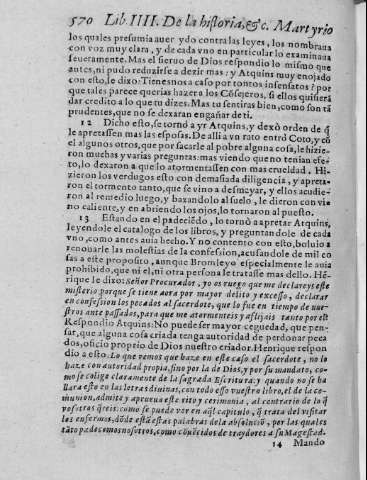 570 Lib. IIII. De la historia, &c. Martyrio
los quales presumia auer ydo contra las leyes, los nombraua
con voz muy clara, y de cada vno en particular lo examinaua
seueramente. Mas el sieruo de Dios respondio lo mismo que
antes, ni pudo reduzirse a dezir mas: y Atquins muy enojado
con esto, le dixo: Tienesnos a caso por tontos insensatos? por
que tales parece querias hazer a los Cõsejeros, si ellos quisierã
dar credito a lo que tu dizes. Mas tu sentiras bien, como son tã
prudentes, que no se dexaran engañar de ti.
12 Dicho esto, se tornò a yr Atquins, y dexò orden de q̃
le apretassen mas las esposas. De alli a vn rato entrò Coto, y cõ
el algunos otros, que por sacarle al pobre alguna cosa, le hizie-
ron muchas y varias preguntas: mas viendo que no tenian efe-
to, lo dexaron a que lo atormentassen con mas crueldad. Hi-
zieron los verdugos esto con demasiada diligencia, y apreta-
ron el tormento tanto, que se vino a desmayar, y ellos acudie-
ron al remedio luego, y baxandolo al suelo, le dieron con vi-
no caliente, y en abriendo los ojos, lo tornaron al puesto.
13 Estando en el padeciẽdo, lo tornò a apretar Atquins,
leyendole el catalogo de los libros, y preguntandole de cada
vno, como antes auia hecho. Y no contento con esto, boluio a
renouarle las molestias de la confesion, acusandole de mil co
sas a este proposito, aunque Bromleyo especialmente le auia
prohibido, que ni el, ni otra persona le tratasse mas dello. Hẽ-
rique le dixo: Señor Procurador, yo os ruego que me declareys este
misterio porque se tiene aora por mayor delito y excesso, declarar
en confession los pecados al sacerdote, que lo fue en tiempo de nue-
stros antepassados, para que me atormenteis y aflijais tanto por est
Respondio Atquins: No puede ser mayor ceguedad, que pen-
sar, que alguna cosa criada tenga autoridad de perdonar peca
dos, oficio proprio de Dios nuestro criador. Henrique respon
dio a esto. Lo que vemos que haze en este caso el sacerdote, no lo
haze con autoridad propia, sino por la de Dios, y por su mandato, co-
mo se colige claramente de la sagrada Escritura; y quando no se ha
llara esto en las letras diuinas, con todo esso vuestro libro, el de la co-
munion, admite y aprueua este rito y cerimonia, al contrario de lo q̃
vosotros q̃reis: como se puede ver en aq̃l capitulo, q̃ trata del visitar
los enfermos, dõde estã estas palabras de la absoluciõ, por las quales
tãto padecemos nosotros, como cõuẽcidos de traydores a su Magestad.
14 Mando